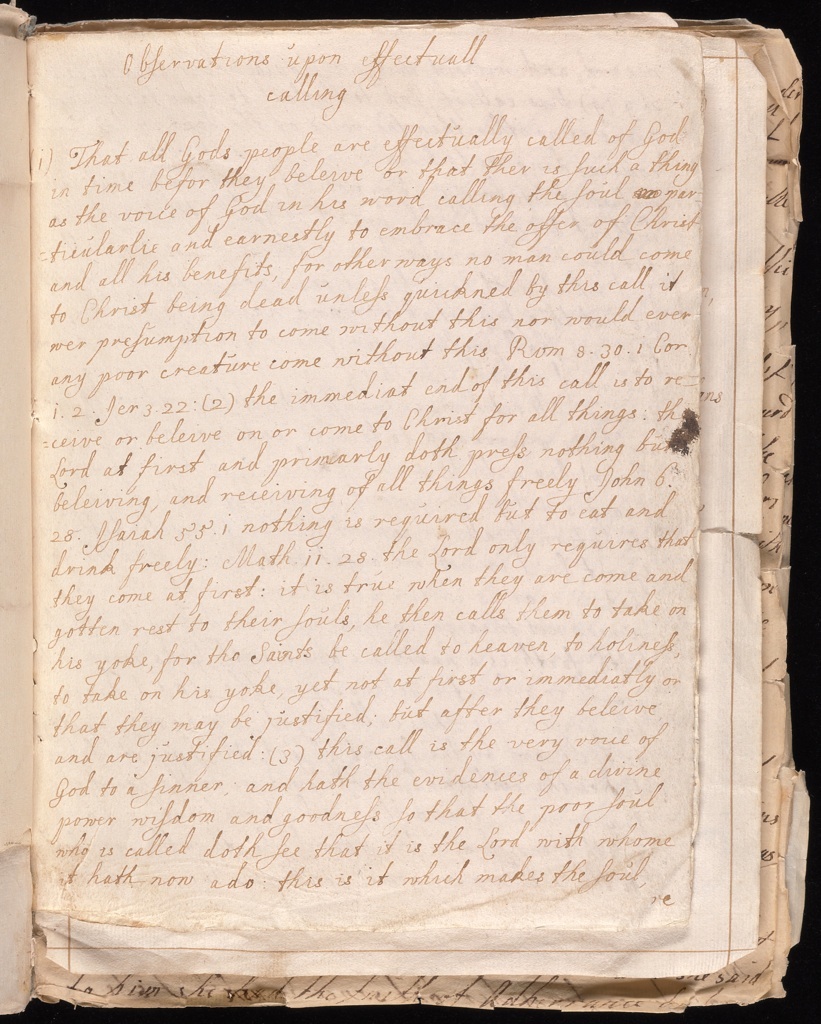 Observations upon effectuall
calling
1) That all Gods people are effectually called of God
in time befor they beleive or that ther is such a thing
as the voice of God in his word calling the soul par
=ticularlie and earnestly to embrace the offer of Christ
and all his benefits, for otherways no man could come
to Christ being dead unless quickned by this call it
wer presumption to come without this nor would ever
any poor creature come without this Rom 8. 30. 1 Cor
1. 2. Jer 3. 22: (2) the immediat end of this call is to re=
=ceive or beleive on or come to Christ for all things: the
Lord at first and primarly doth press nothing but
beleiving, and receiving of all things freely John 6.
28. Isaiah 55. 1 nothing is required but to eat and
drink freely: Math. 11. 28. the Lord only requires that
they come at first: it is true when they are come and
gotten rest to their souls, he then calls them to take on
his yoke, for tho Saints be called to heaven, to holiness,
to take on his yoke, yet not at first or immediatly or
that they may be justified; but after they beleive
and are justified: (3) this call is the very voice of
God to a sinner, and hath the evidences of a divine
power wisdom and goodness so that the poor soul
who is called doth see that it is the Lord with whome
it hath now ado: this is it which makes the soul
re
to him she the of
she said